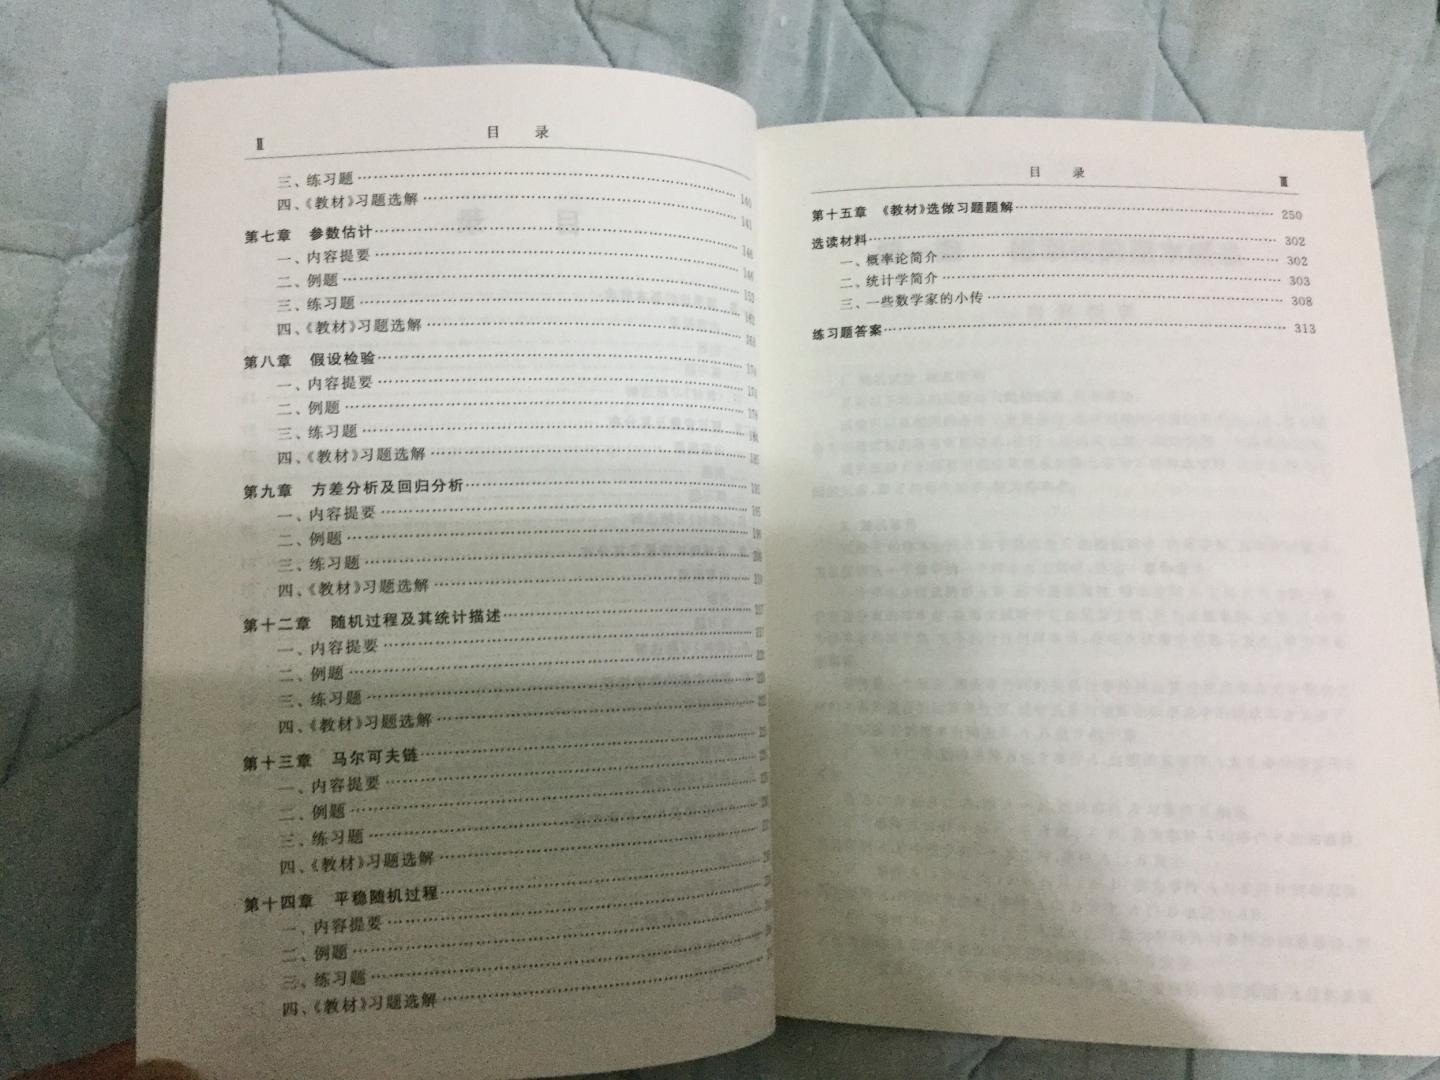 Ⅱ
目 录
三、练习题 140
四、《教材》习题选解 141
第七章 参数估计 146
一、内容提要 146
二、例题 152
三、练习题 162
四、《教材》习题选解
第八章 假设检验 174
一、内容提要 174
二、例题 179
三、练习题
四、《教材》习题选解
第九章 方差分析及回归分析
一、内容提要
二、例题
三、练习题
四、《教材》习题选解
第十二章 随机过程及其统计描述
一、内容提要
二、例题
三、练习题
四、《教材》习题选解
第十三章 马尔可夫链
一、内容提要
二、例题
三、练习题
四、《教材》习题选解
第十四章 平稳随机过程
一、内容提要
二、例题
三、练习题
四、《教材》习题选解
目 录
Ⅲ
第十五章 《教材》选做习题题解 250
选读材料 302
一、概率论简介 302
二、统计学简介 303
三、一些数学家的小传 308
练习题答案 313